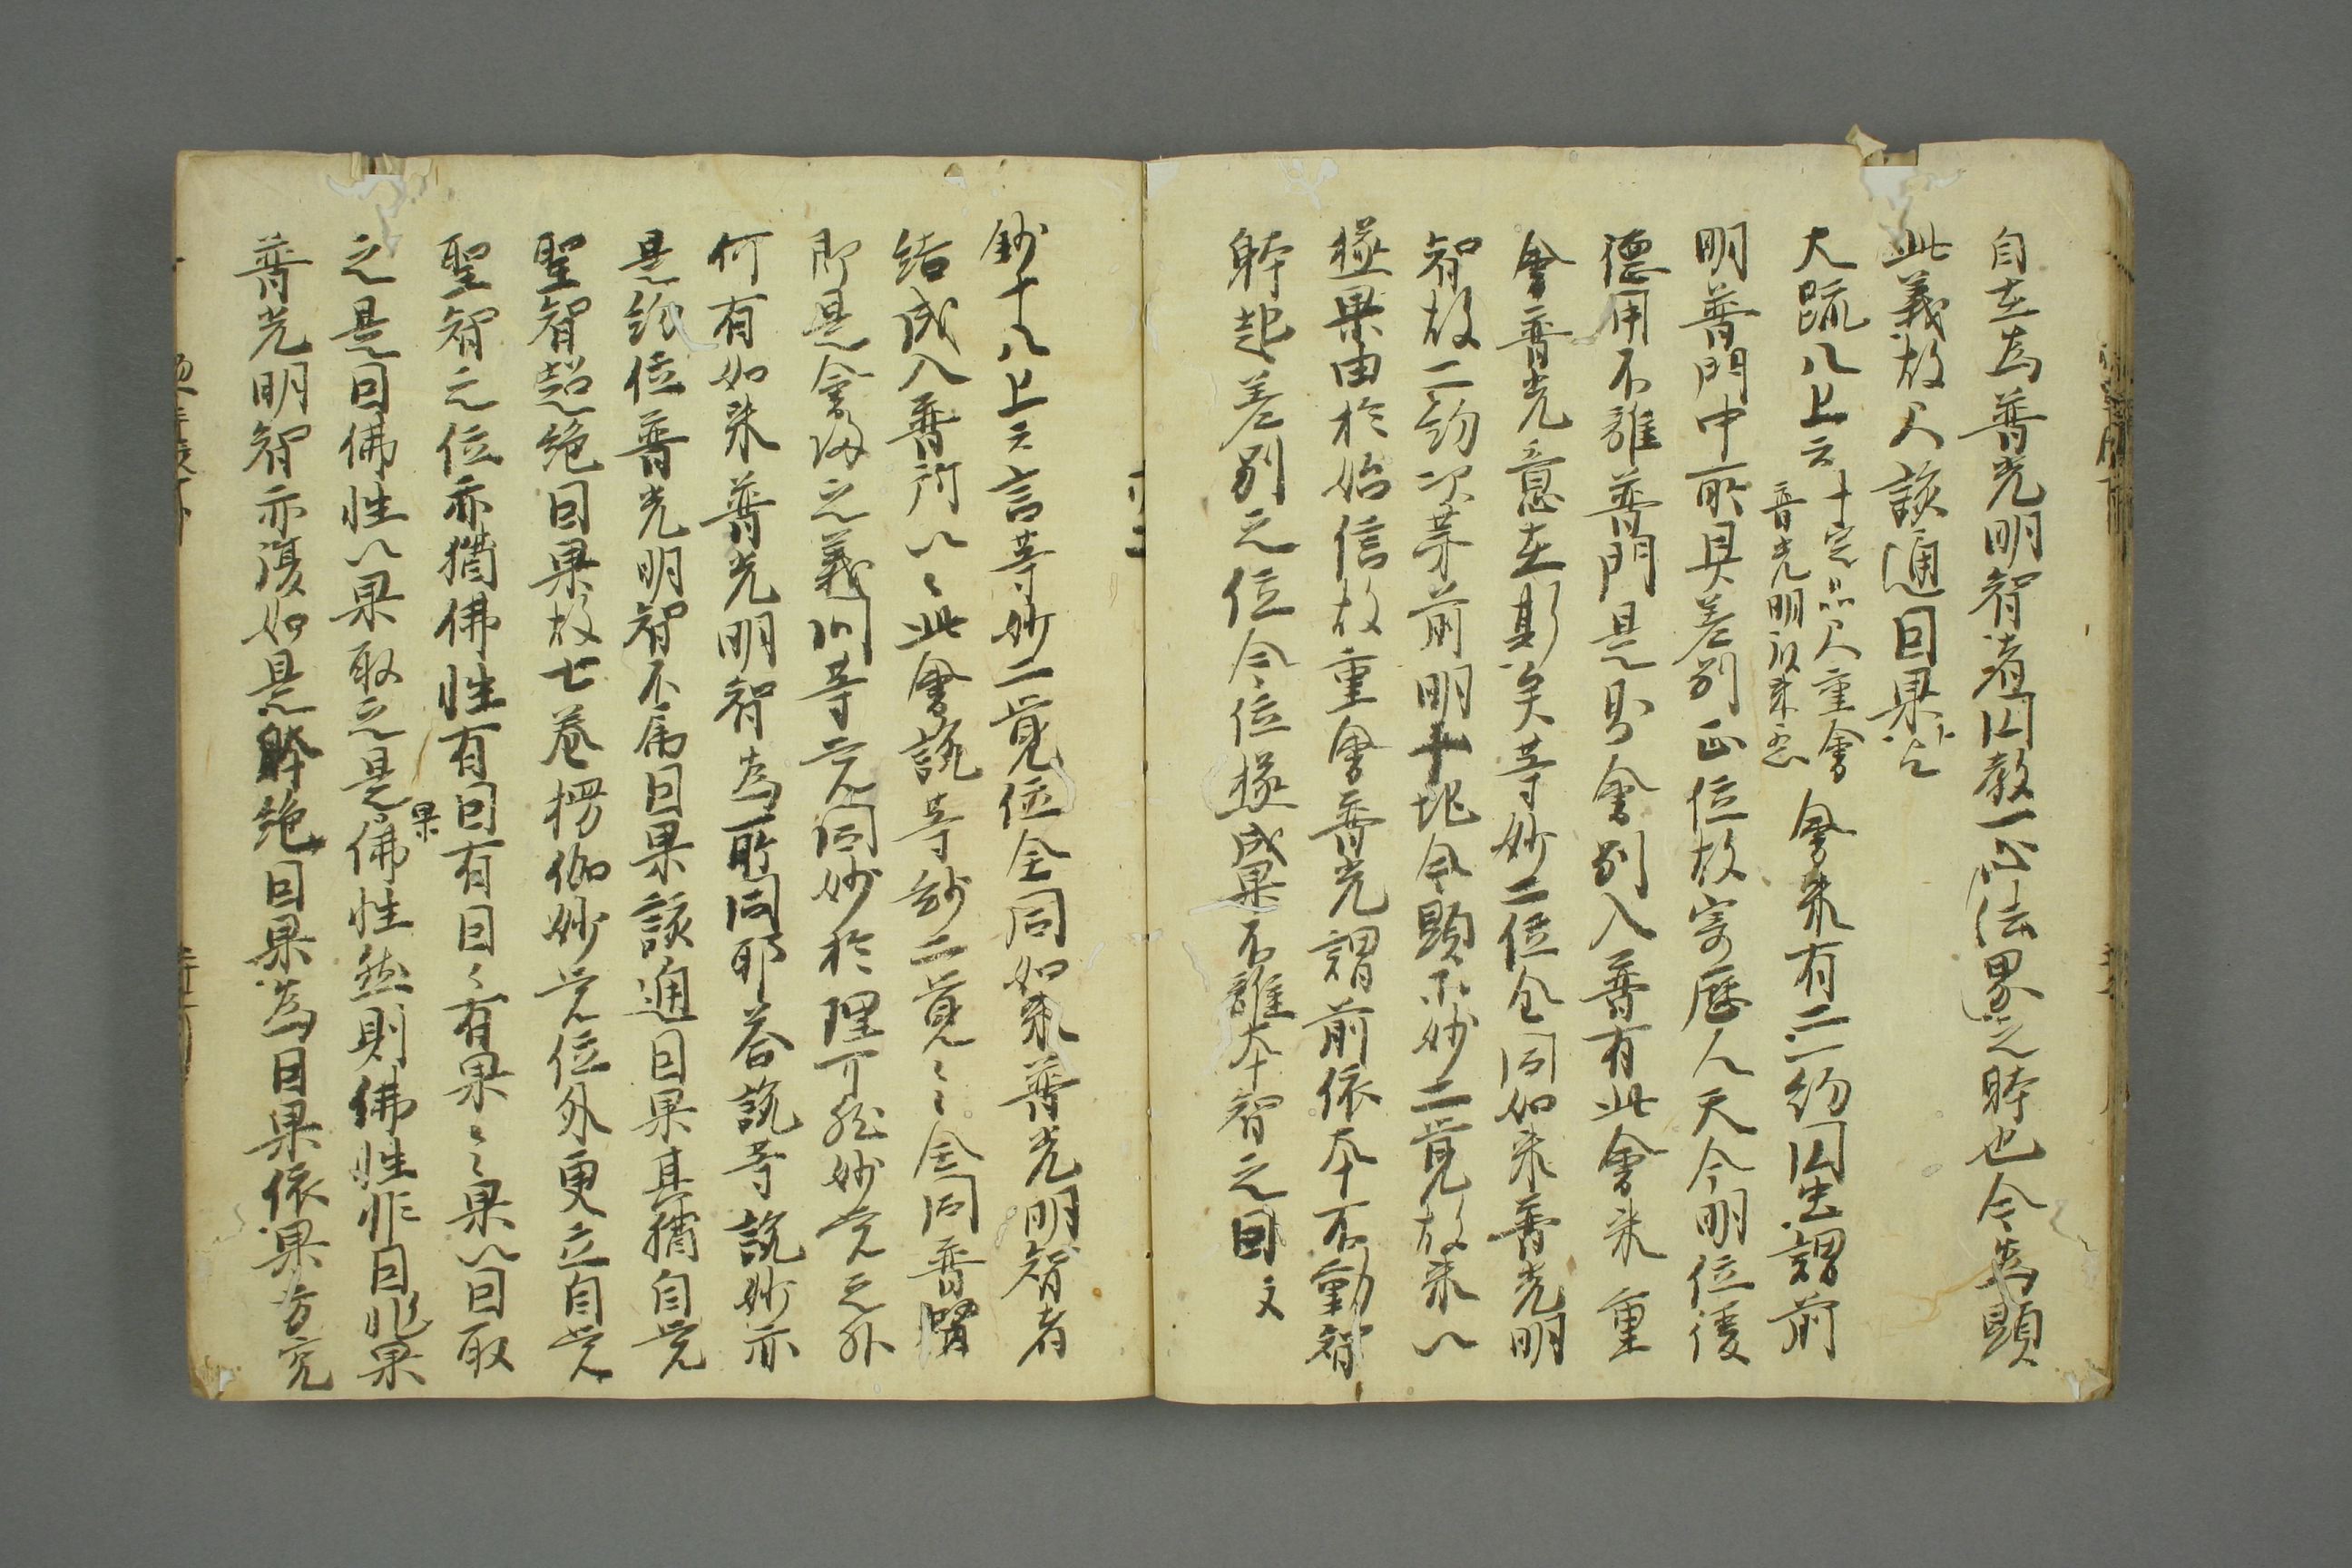 自在為普光明智者因教一心法界之時也今為顕
此義故又該通因果
大疏八上云十定品又重會會来有二一約因生謂前
普光明
明普門中所具差別正位故寄歴人天今明位後
德用不離普門是則會別入普有此會来重
會普光意在斯矣等妙二位全同如来普光明
智故二約次苐前明十地今顕等妙二覚故来以
極果由於始信故重會普光謂前依本不動智
躰起差別之位今位極成果不離本智之因文
鈔十八上云言等妙二覚位全同如来普光明智者
結成入普所以〻此會説等妙二覚〻〻全同普賢
即是會帰之義問等覚同妙於理可然妙覚之外
何有如来普光明智為所同耶荅説等説妙亦
是約位普光明智不属因果該通因果其猶自覚
聖智超絶因果故七巻楞伽妙覚位外更立自覚
聖智之位亦猶佛性有因有因〻有果〻〻果以因取
之是因佛性以果取之是果佛性然則佛性非因非果
普光明智亦復如是躰絶因果為因果依果方究